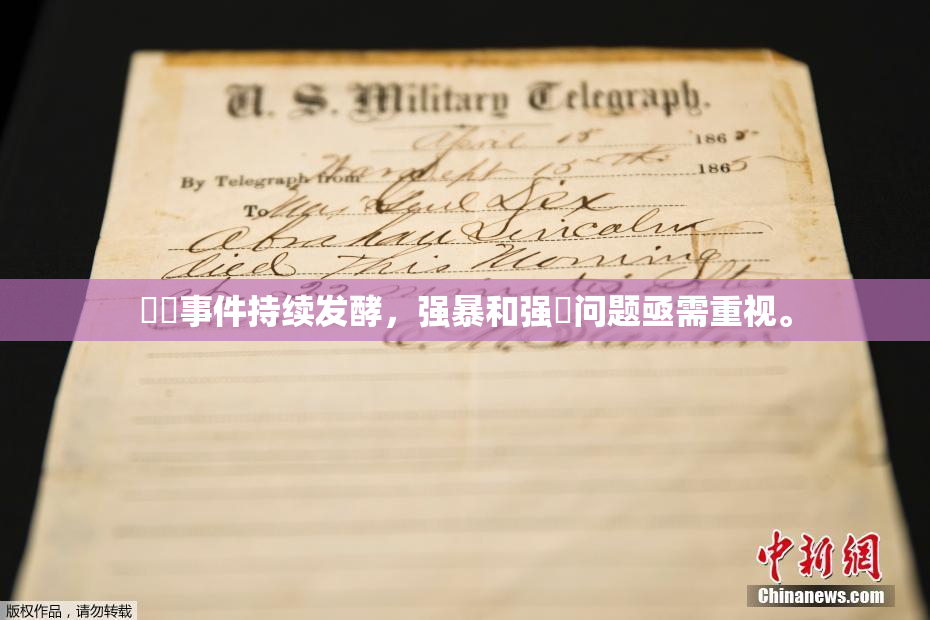 U. S. Military Telegraph.
April 15 1865
By Telegraph from War Dept 15th 1865
To Maj Genl Dix
Abraham Lincoln
died This Morning
at 22 minutes after
事件持续发酵，强暴和强问题亟需重视。
E. M. Stanton
中新网
Chinanews.com
版权作品，请勿转载